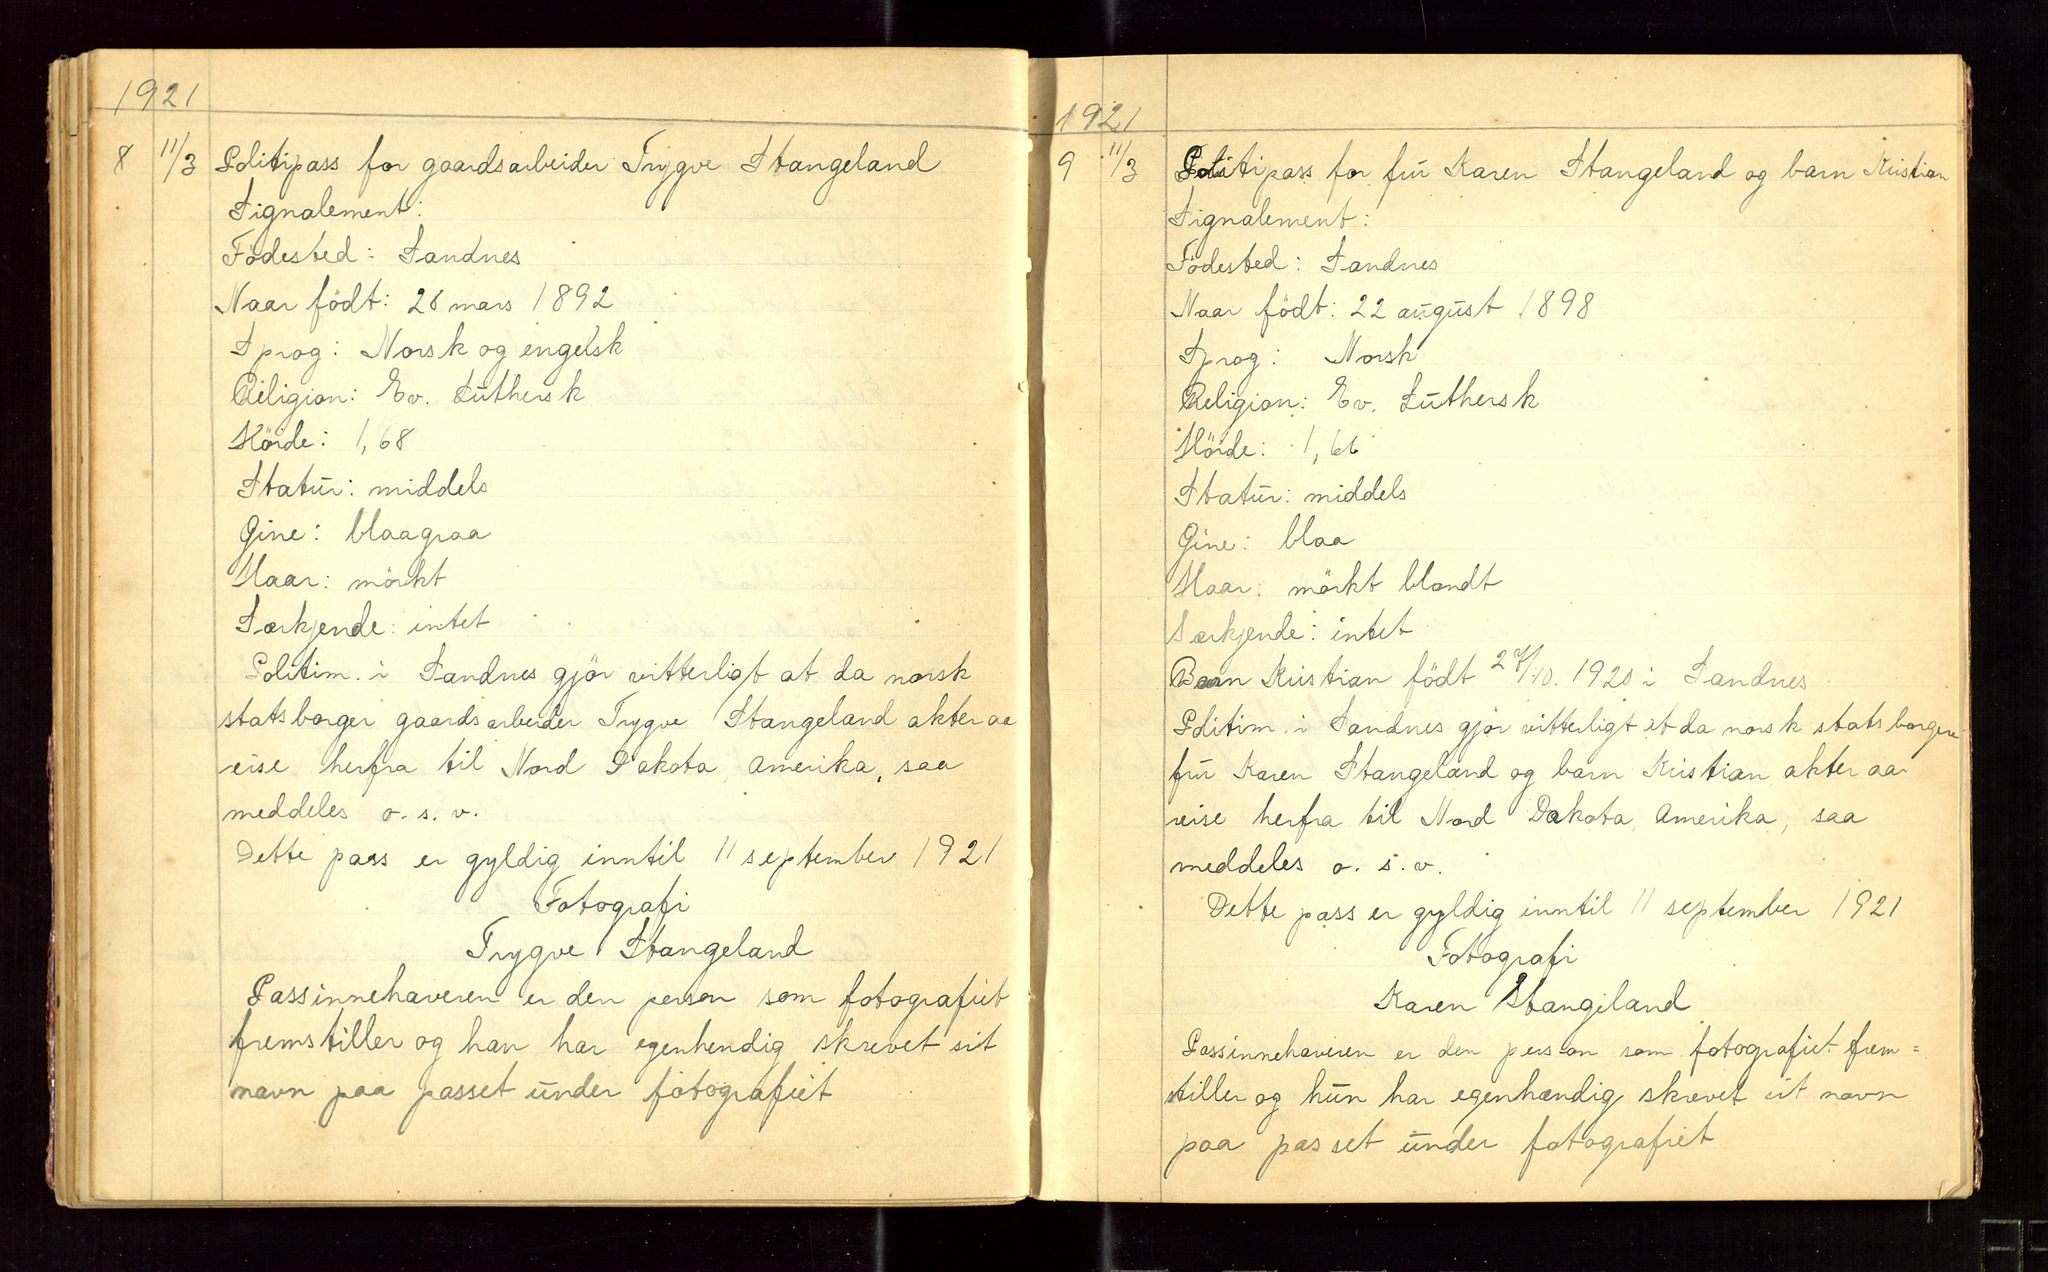 1921
8 11/3 Politipass for gaardsarbeider Trygve Stangeland
Signalement:
Födested: Sandnes
Naar födt: 28 mars 1892
Sprog: Norsk og engelsk
Religion: Ev. Luthersk
Höide: 1,68
Statur: middels
Öine: blaagraa
Haar: mörkt
Særkjende: intet
Politim. i Sandnes gjör vitterligt at da norsk
statsborger gaardsarbeider Trygve Stangeland akter aa
reise herfra til Nord Dakota, Amerika, saa
meddeles o. s. v.
Dette pass er gyldig inntil 11 september 1921
Fotografi
Trygve Stangeland
Passinnehaveren er den person som fotografiet
fremstiller og han har egenhendig skrevet sit
navn paa passet under fotografiet
1921
9 11/3 Politipass for fru Karen Stangeland og barn Kristian
Signalement:
Födested: Sandnes
Naar födt: 22 august 1898
Sprog: Norsk
Religion: Ev. Luthersk
Höide: 1,66
Statur: middels
Öine: blaa
Haar: mörkt blondt
Særkjende: intet
Barn Kristian födt 27/10. 1920 i Sandnes
Politim. i Sandnes gjör vitterligt at da norsk statsborgere
fru Karen Stangeland og barn Kristian akter aa
reise herfra til Nord Dakota, Amerika, saa
meddeles o. s. v.
Dette pass er gyldig inntil 11 september 1921
Fotografi
Karen Stangeland
Passinnehaveren er den person som fotografiet frem=
stiller og hun har egenhændig skrevet sit navn
paa passet under fotografiet